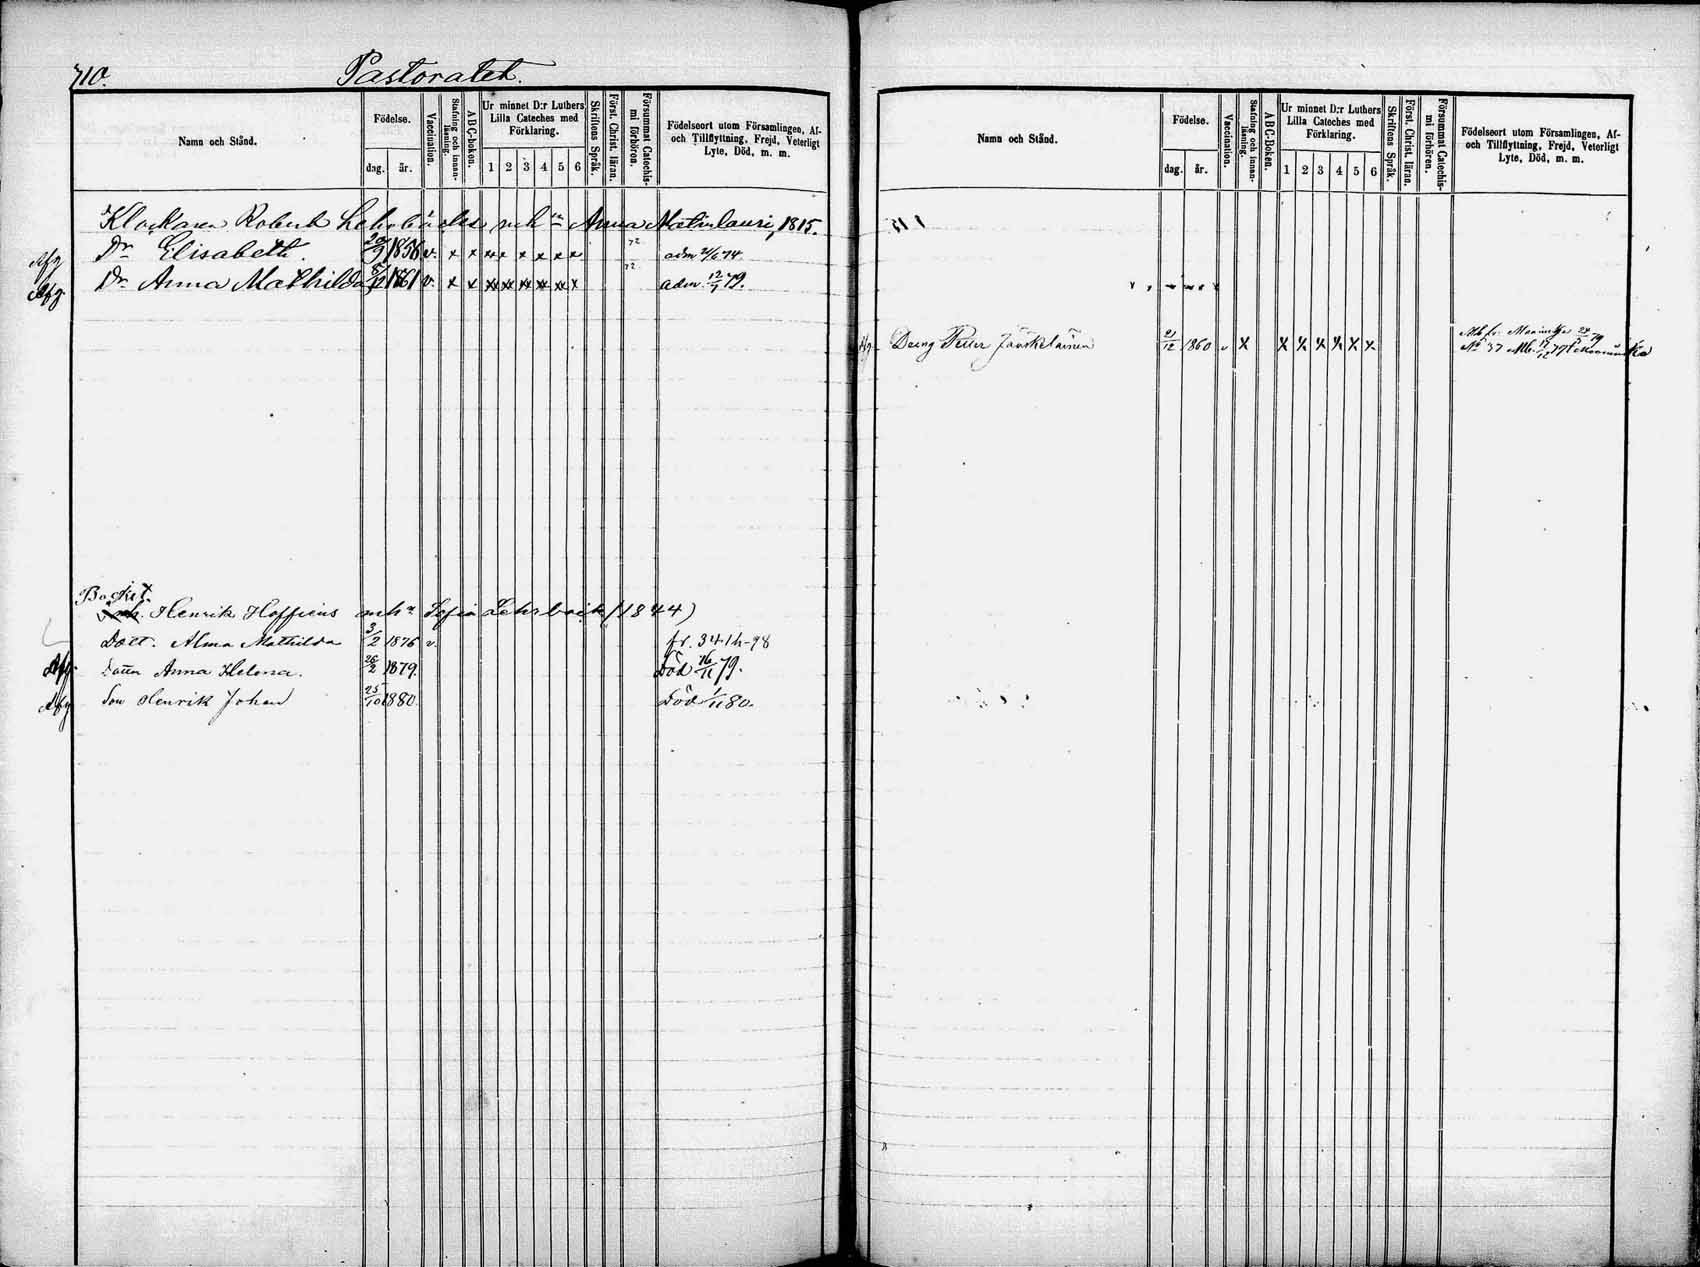 710. Pastoratet.
Namn och Stånd. Födelse. dag. år. Vaccination. Stafning och innanläsning. ABC-boken. Ur minnet D:r Luthers Lilla Cateches med Förklaring. 1 2 3 4 5 6 Skriftens Språk. Först. Christ. läran. Försummat Catechismi förhören. Födelseort utom Församlingen, Af- och Tillflyttning, Frejd, Veterligt Lyte, Död, m. m.
Klockaren Robert Lehrbäcks och Anna Malmlauri, 1815.
Afg Dr Elisabeth. 1858 v. x x x x x x x x 72 adm 21/6 74
Afg. Dr Anna Mathilda 5/12 1861 v. x x x x x x x x 72 adm. 12/7 79.
Bocket
Henrik Hoffrens och Sofia Lehrback (1844)
Dott. Alma Mathilda 3/2 1876 v. fr. 341 h-98
Afg. Dottn Anna Helena. 26/2 1879. Död 16/11 79.
Afg Son Henrik Johan 25/10 1880 Död 1/11 80.
Namn och Stånd. Födelse. dag. år. Vaccination. Stafning och innanläsning. ABC-Boken. Ur minnet D:r Luthers Lilla Cateches med Förklaring. 1 2 3 4 5 6 Skriftens Språk. Först. Christ. läran. Försummat Catechismi förhören. Födelseort utom Församlingen, Af- och Tillflyttning, Frejd, Veterligt Lyte, Död, m. m.
Afg. Dreng Petter Jääskeläinen 21/12 1860 v x x x x x x x Mb fr. 24/79
No 37 Mb. 12/12 79 t.